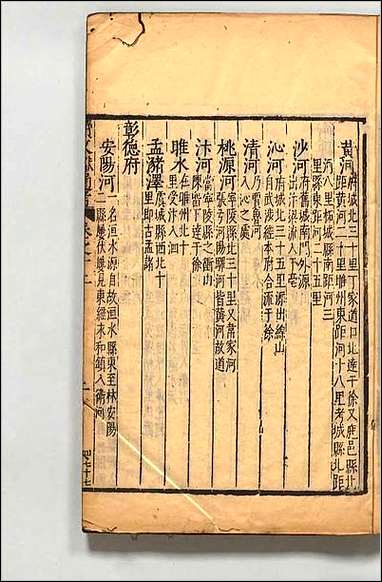 黄河 府城北三十里丁家道口北達于徐又鹿邑縣北
距黄河二十里睢州東距河十八里考城縣北距
河八里柘城縣南距河三
里縣東距河二十五里
沙河 府舊城南門外源
出汴梁流入于亳
沁河 府城北十五里源出綿山
自武陟經本府合流于徐
清河 乃賈魯河
入沁之處
桃源河 寧陵縣北三十里又蕭家河
張弓河陽驛河皆黄河故道
汴河 當寧陵縣之衝山
睢水 在睢州北十
里受汴泗
孟豬澤 虞城縣西北十
里即古孟諸
彰德府
安陽河 一名洹水源自故洹水縣東至林安陽
二縣屢伏屢見東經永和鎮入衛河